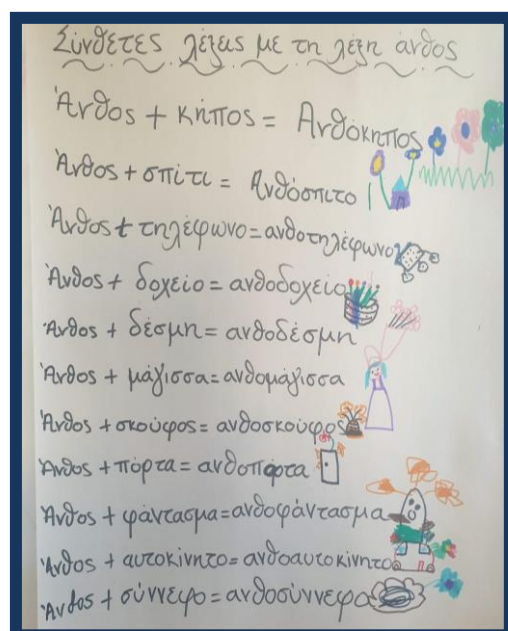 Σύνθετες λέξεις με τη λέξη άνθος
Άνθος + κήπος = Ανθόκηπος
Άνθος + σπίτι = Ανθόσπιτο
Άνθος + τηλέφωνο = ανθοτηλέφωνο
Άνθος + δοχείο = ανθοδοχείο
Άνθος + δέσμη = ανθοδέσμη
Άνθος + μάγισσα = ανθομάγισσα
Άνθος + σκούφος = ανθοσκούφος
Άνθος + πόρτα = ανθοπόρτα
Άνθος + φάντασμα = ανθοφάντασμα
Άνθος + αυτοκίνητο = ανθοαυτοκίνητο
Άνθος + σύννεφο = ανθοσύννεφο